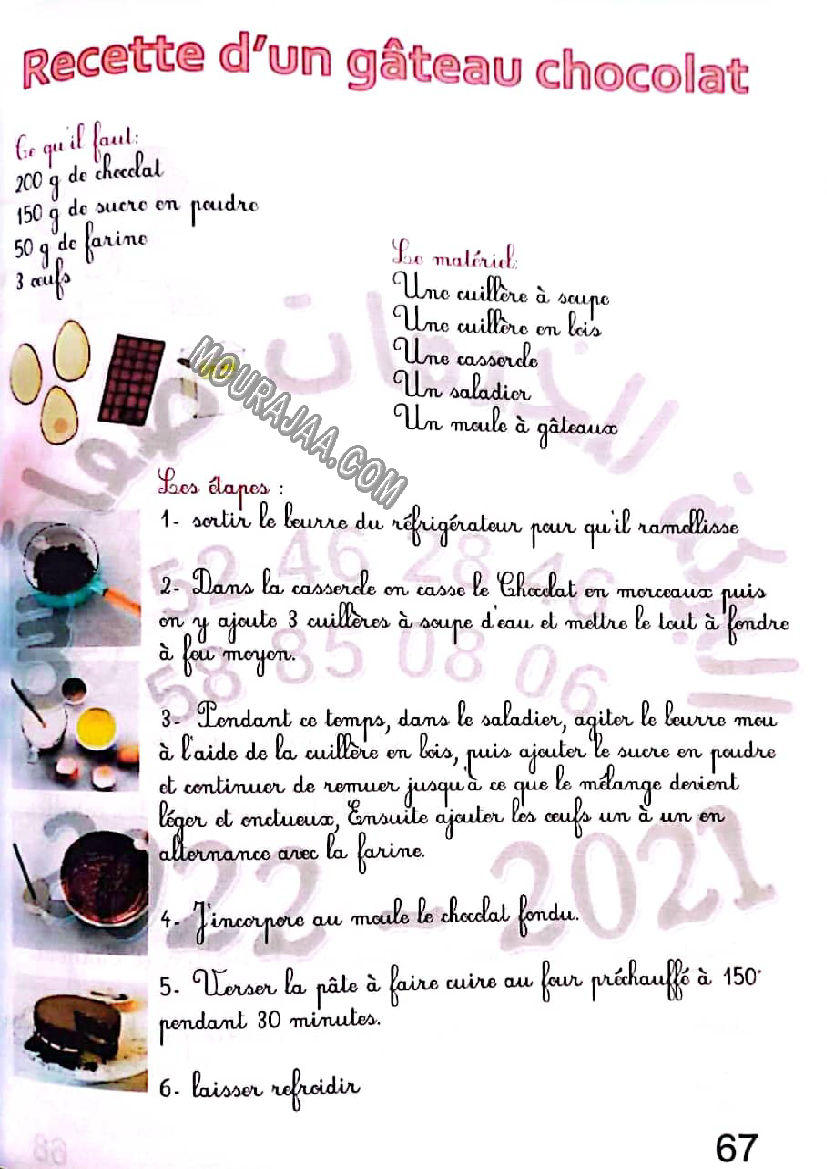 Recette d'un gâteau chocolat
Ce qu'il faut:
200 g de chocolat
150 g de sucre en poudre
50 g de farine
3 œufs
Le matériel:
Une cuillère à soupe
Une cuillère en bois
Une casserole
Un saladier
Un moule à gâteaux
MOURAJAA.COM
Les étapes :
1- sortir le beurre du réfrigérateur pour qu'il ramollisse
52 46 28 46
2- Dans la casserole on casse le Chocolat en morceaux puis
on y ajoute 3 cuillères à soupe d'eau et mettre le tout à fondre
à feu moyen.
58 85 08 06
3- Pendant ce temps, dans le saladier, agiter le beurre mou
à l'aide de la cuillère en bois, puis ajouter le sucre en poudre
et continuer de remuer jusqu'à ce que le mélange devient
léger et onctueux, Ensuite ajouter les œufs un à un en
alternance avec la farine.
2022 - 2021
4- J'incorpore au moule le chocolat fondu.
5- Verser la pâte à faire cuire au four préchauffé à 150°
pendant 30 minutes.
6- laisser refroidir
67